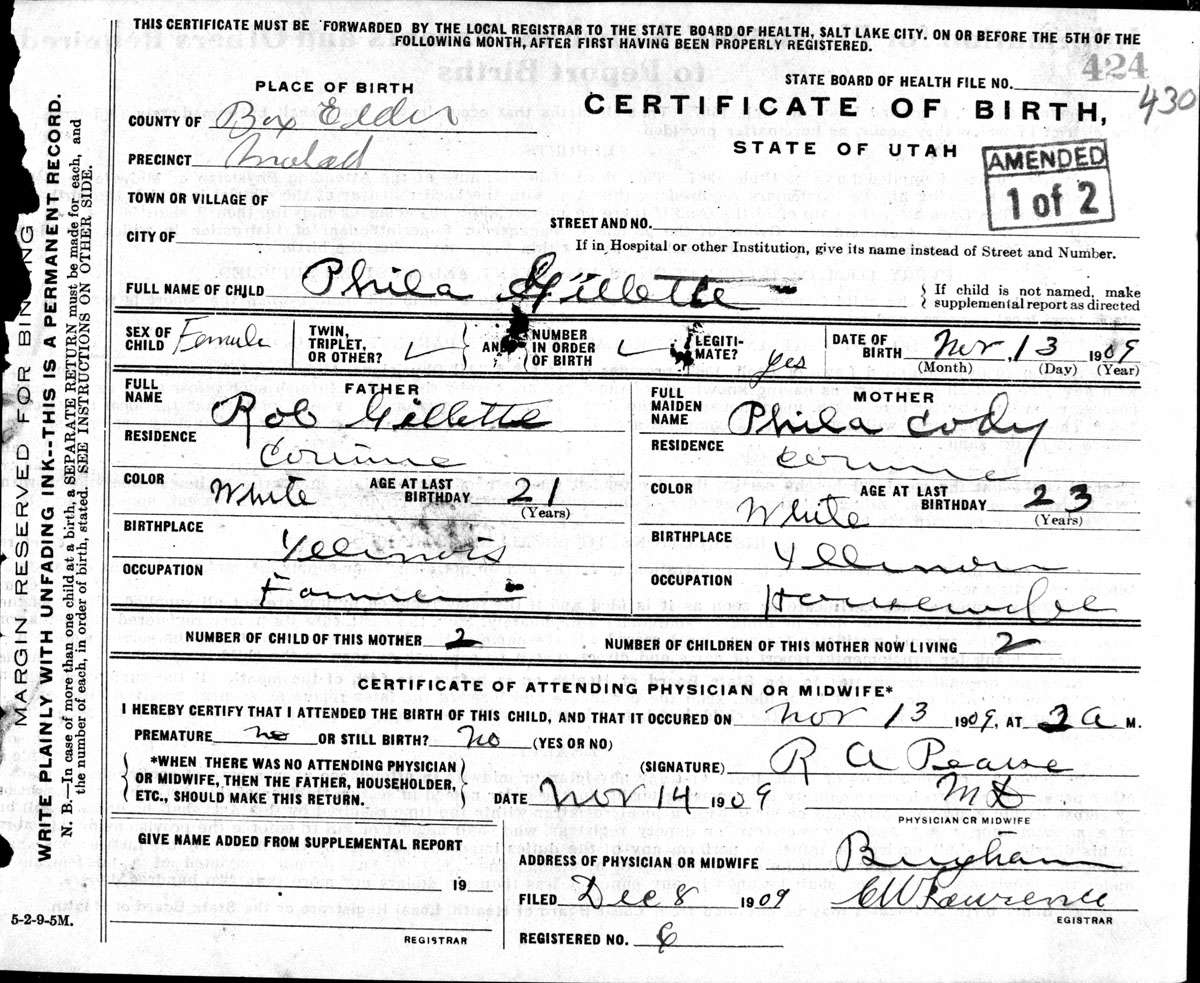 THIS CERTIFICATE MUST BE FORWARDED BY THE LOCAL REGISTRAR TO THE STATE BOARD OF HEALTH, SALT LAKE CITY. ON OR BEFORE THE 5TH OF THE
FOLLOWING MONTH, AFTER FIRST HAVING BEEN PROPERLY REGISTERED.
424
STATE BOARD OF HEALTH FILE NO.
430
PLACE OF BIRTH
CERTIFICATE OF BIRTH,
STATE OF UTAH
COUNTY OF Box Elder
PRECINCT Malad
AMENDED
1 of 2
TOWN OR VILLAGE OF
STREET AND NO.
CITY OF
If in Hospital or other Institution, give its name instead of Street and Number.
FULL NAME OF CHILD Phila Gillette
If child is not named, make
supplemental report as directed
SEX OF CHILD Female
TWIN, TRIPLET, OR OTHER?
AND
NUMBER IN ORDER OF BIRTH
LEGITI-MATE? yes
DATE OF BIRTH Nov 13 1909
(Month) (Day) (Year)
FATHER
FULL NAME Rob Gillette
RESIDENCE Corinne
COLOR White AGE AT LAST BIRTHDAY 21
(Years)
BIRTHPLACE Illinois
OCCUPATION Farmer
MOTHER
FULL MAIDEN NAME Phila Cody
RESIDENCE Corinne
COLOR White AGE AT LAST BIRTHDAY 23
(Years)
BIRTHPLACE Illinois
OCCUPATION Housewife
NUMBER OF CHILD OF THIS MOTHER 2 NUMBER OF CHILDREN OF THIS MOTHER NOW LIVING 2
CERTIFICATE OF ATTENDING PHYSICIAN OR MIDWIFE*
I HEREBY CERTIFY THAT I ATTENDED THE BIRTH OF THIS CHILD, AND THAT IT OCCURED ON Nov 13 1909, AT 2 a M.
PREMATURE no OR STILL BIRTH? no (YES OR NO)
*WHEN THERE WAS NO ATTENDING PHYSICIAN
OR MIDWIFE, THEN THE FATHER, HOUSEHOLDER,
ETC., SHOULD MAKE THIS RETURN.
(SIGNATURE) R A Pearse
M D
DATE Nov 14 1909
PHYSICIAN OR MIDWIFE
GIVE NAME ADDED FROM SUPPLEMENTAL REPORT
19
REGISTRAR
ADDRESS OF PHYSICIAN OR MIDWIFE Brigham
FILED Dec 8 1909 E W Lawrence
EGISTRAR
REGISTERED NO. 6
5-2-9-5M.
MARGIN RESERVED FOR BINDING
WRITE PLAINLY WITH UNFADING INK--THIS IS A PERMANENT RECORD.
N. B.—In case of more than one child at a birth, a SEPARATE RETURN must be made for each, and
the number of each, in order of birth, stated. SEE INSTRUCTIONS ON OTHER SIDE.